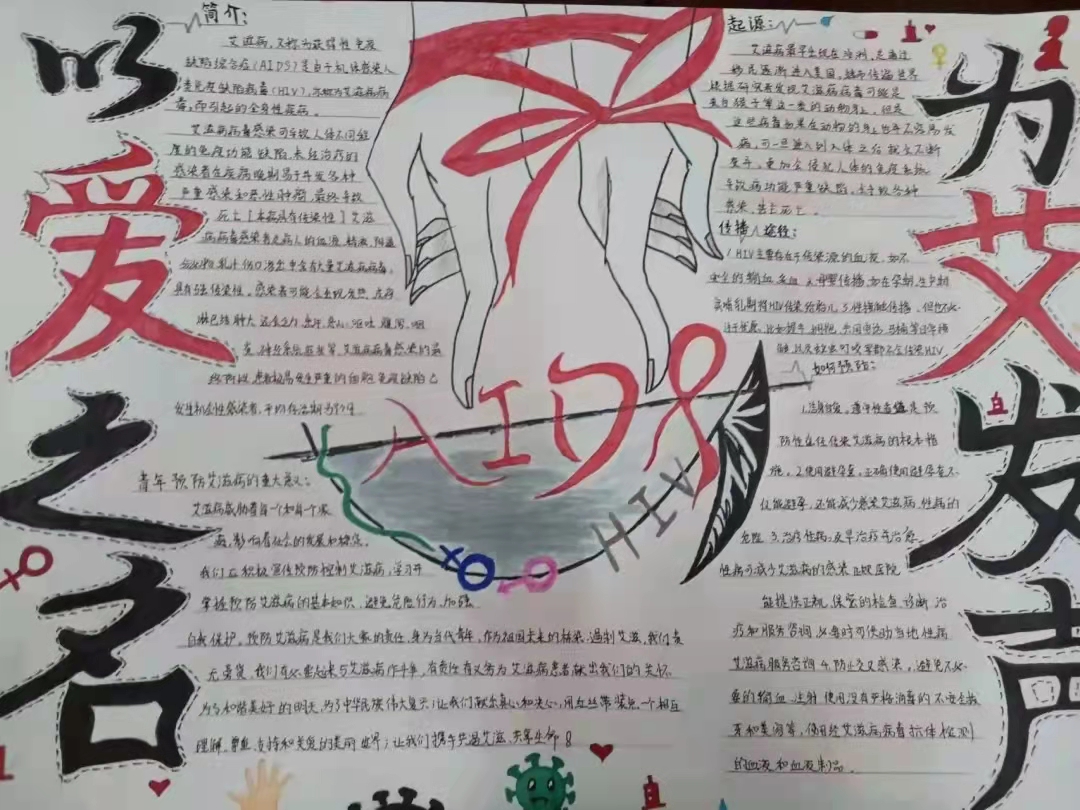 以爱之名
为艾发声
简介:
艾滋病,又称为获得性免疫
缺陷综合症(AIDS)是由于机体感染人
类免疫缺陷病毒(HIV),亦称为艾滋病病
毒,而引起的全身性疾病.
艾滋病病毒感染可导致人体不同程
度的免疫功能缺陷,未经治疗的
感染者在疾病晚期易于并发各种
严重感染和恶性肿瘤,最终导致
死亡【本病具有传染性】艾滋
病病毒感染者及病人的血液,精液,阴道
分泌物,乳汁,伤口渗出中含有大量艾滋病病毒,
具有强传染性。感染者可能会出现发热,皮疹
淋巴结肿大 还会乏力
艾滋病病毒感染的最
终
发生机会性感染者,平均存活期为
青年预防艾滋病的重大意义:
艾滋病威胁着每一个和每一个家
庭,影响着社会的发展和稳定。
我们应积极宣传预防控制艾滋病,学习并
掌握预防艾滋病的基本知识,避免危险行为,加强
自我保护。预防艾滋病是我们大家的责任,身为当代青年,作为祖国未来的栋梁,遏制艾滋,我们责
无旁贷,我们有必要起来与艾滋病作斗争,有责任有义务为艾滋病患者献出我们的关怀
为了和谐美好的明天,为了中华民族伟大复兴,让我们献出真心和决心,用红丝带装起一个相互
理解、尊重、支持和关爱的美丽世界;让我们携手共遏艾滋,共享生命
AIDS
HIV
起源:
艾滋病最早出现在非洲,是通过
移民逐渐进入美国,继而传遍世界
来自猴子等这一类的动物身上,但是
这些病毒如果在动物的身上也许不容易发
病,可一旦进入到人体之后就会不断
变异,更加会侵犯人体的免疫系统
导致病功能严重缺陷,会导致各种
感染,甚至死亡。
传播途径:
1 HIV主要存在于传染源的血液,如不
安全的输血 2.母婴传播,如在孕期,生产时
或哺乳期将HIV传染给胎儿 3.性接触传播。但也不必
过于忧虑,比如握手,拥抱,共同吃饭
如何预防:
1.洁身自爱,遵守性道德是预
防性途径传染艾滋病的根本措
施。2.使用避孕套,正确使用避孕套不
仅能避孕,还能减少感染艾滋病,性病的
危险 3.治疗性病:及早治疗并治愈
性病可减少艾滋病的感染 正规医院
能提供正规,保密的检查,诊断,治
疗和服务咨询,必要时可借助当地性病
艾滋病服务咨询 4.防止交叉感染,避免不必
要的输血、注射,使用没有严格消毒的不安全拔
牙和美容等,使用经艾滋病病毒抗体检测
的血液和血液制品.